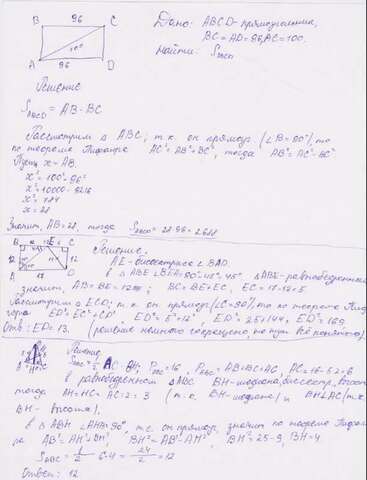 B 96 C
A 96 D
Дано: ABCD - прямоугольник,
BC = AD = 96, AC = 100.
Найти: S
Решение
S ABCD = AB · BC
Рассмотрим Δ ABC; т.к. он прямоуг (∠B = 90°), то
по теореме Пифагора AC² = AB² + BC², тогда AB² = AC² - BC²
Пусть x = AB.
x² = 100² - 96²
x² = 10000 - 9216
x² = 784
x = 28
Значит, AB = 28, тогда S = 28 · 96 = 2688
B 12 E C
12 12
A 17 D
Решение.
AE - биссектриса ∠BAD.
в Δ ABE ∠BEA = 90° - 45° = 45° ΔABE - равнобедренный
значит, AB = BE = 12; BC = BE + EC, EC = 17 - 12 = 5
Рассмотрим Δ ECD; т.к. он прямоуг. (∠C = 90°), то по теореме Пифа-
гора ED² = EC² + CD², ED² = 5² + 12², ED² = 25 + 144, ED² = 169
Отв: ED = 13. (решение немного сокращено, но суть вся понятна).
Решение
S = 1/2 AC · BH; P = 16, P ABC = AB + BC + AC, AC = 16 - 5 · 2 = 6
в равнобедренном ΔABC BH - медиана, биссектр, высота
тогда AH = HC = AC : 2 = 3 (т.к. BH - медиана) и BH ⊥ AC (т.к.
BH - высота).
в Δ ABH ∠AHB = 90°, т.е. он прямоуг, значит по теореме Пифаго-
ра AB² = AH² + BH², BH² = AB² - AH², BH² = 25 - 9, BH = 4.
S ABC = 1/2 · 6 · 4 = 24/2 = 12
Ответ: 12